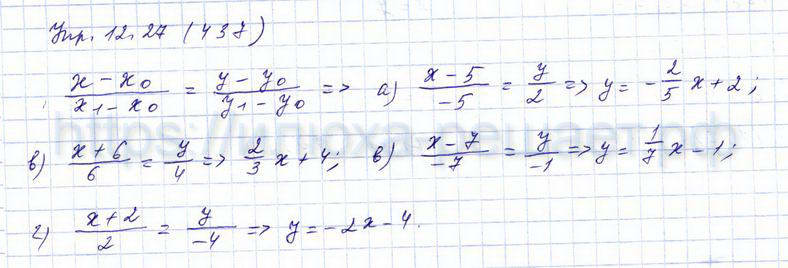 Упр. 12.27 (437)
(x – x₀)/(x₁ – x₀) = (y – y₀)/(y₁ – y₀) => а) (x – 5)/(–5) = y/2 => y = –2/5 x + 2;
в) (x + 6)/6 = y/4 => 2/3 x + 4; в) (x – 7)/(–7) = y/(–1) => y = 1/7 x – 1;
г) (x + 2)/2 = y/(–4) => y = –2x – 4.
https://илюха-решает.рф